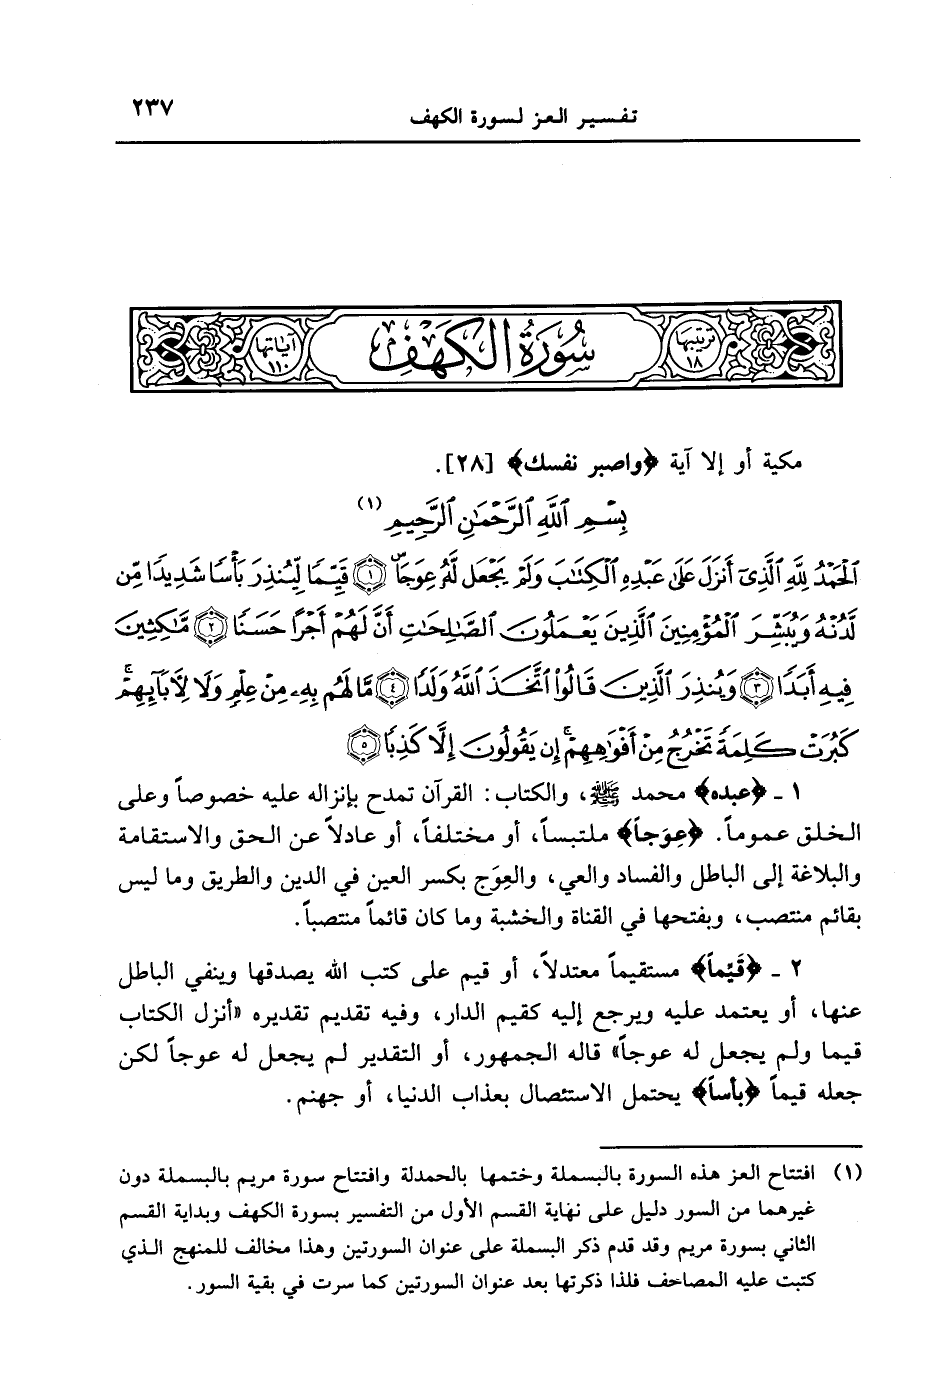 تفسير العز لسورة الكهف
٢٣٧
ترتيبها ١٨
سُورَةُ الكَهْفِ
آياتها ١١٠
مكية أو إلا آية ﴿واصبر نفسك﴾ [٢٨].
بِسْمِ ٱللَّهِ ٱلرَّحْمَٰنِ ٱلرَّحِيمِ (١)
ٱلْحَمْدُ لِلَّهِ ٱلَّذِىٓ أَنزَلَ عَلَىٰ عَبْدِهِ ٱلْكِتَٰبَ وَلَمْ يَجْعَل لَّهُۥ عِوَجَا ۜ ﴿١﴾ قَيِّمًا لِّيُنذِرَ بَأْسًا شَدِيدًا مِّن
لَّدُنْهُ وَيُبَشِّرَ ٱلْمُؤْمِنِينَ ٱلَّذِينَ يَعْمَلُونَ ٱلصَّٰلِحَٰتِ أَنَّ لَهُمْ أَجْرًا حَسَنًا ﴿٢﴾ مَّٰكِثِينَ
فِيهِ أَبَدًا ﴿٣﴾ وَيُنذِرَ ٱلَّذِينَ قَالُوا۟ ٱتَّخَذَ ٱللَّهُ وَلَدًا ﴿٤﴾ مَّا لَهُم بِهِۦ مِنْ عِلْمٍ وَلَا لِءَابَآئِهِمْ ۚ
كَبُرَتْ كَلِمَةً تَخْرُجُ مِنْ أَفْوَٰهِهِمْ ۚ إِن يَقُولُونَ إِلَّا كَذِبًا ﴿٥﴾
١ ـ ﴿عبده﴾ محمد ﷺ، والكتاب: القرآن تمدح بإنزاله عليه خصوصاً وعلى
الخلق عموماً. ﴿عِوَجاً﴾ ملتبساً، أو مختلفاً، أو عادلاً عن الحق والاستقامة
والبلاغة إلى الباطل والفساد والعي، والعِوَج بكسر العين في الدين والطريق وما ليس
بقائم منتصب، وبفتحها في القناة والخشبة وما كان قائماً منتصباً.
٢ ـ ﴿قَيِّماً﴾ مستقيماً معتدلاً، أو قيم على كتب الله يصدقها وينفي الباطل
عنها، أو يعتمد عليه ويرجع إليه كقيم الدار، وفيه تقديم تقديره «أنزل الكتاب
قيما ولم يجعل له عوجاً» قاله الجمهور، أو التقدير لم يجعل له عوجاً لكن
جعله قيماً ﴿بأساً﴾ يحتمل الاستئصال بعذاب الدنيا، أو جهنم.
(١) افتتاح العز هذه السورة بالبسملة وختمها بالحمدلة وافتتاح سورة مريم بالبسملة دون
غيرهما من السور دليل على نهاية القسم الأول من التفسير بسورة الكهف وبداية القسم
الثاني بسورة مريم وقد قدم ذكر البسملة على عنوان السورتين وهذا مخالف للمنهج الذي
كتبت عليه المصاحف فلذا ذكرتها بعد عنوان السورتين كما سرت في بقية السور.